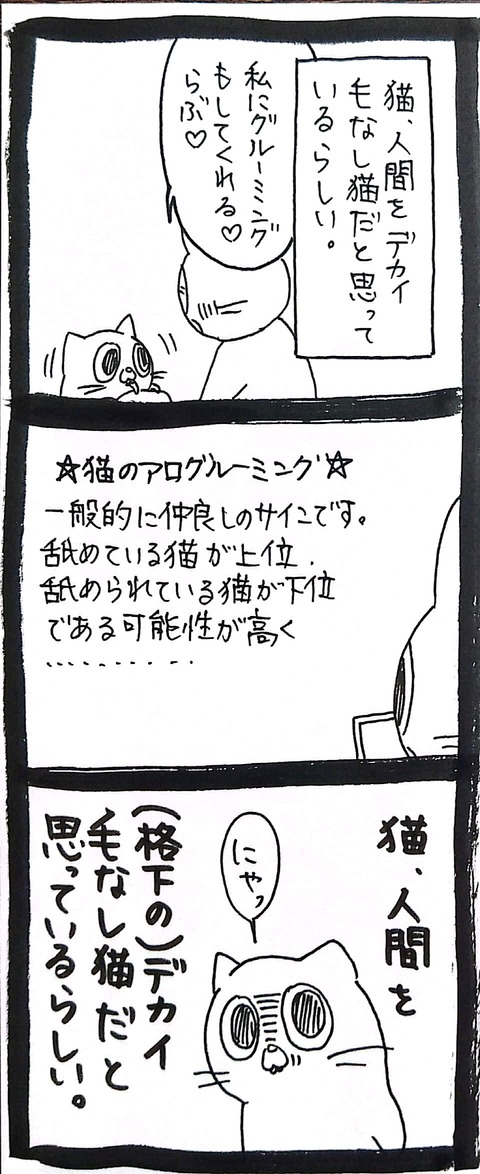 猫、人間をデカイ
毛なし猫だと思って
いるらしい。
私にグルーミング
もしてくれる♡
らぶ♡
☆猫のアログルーミング☆
一般的に仲良しのサインです。
舐めている猫が上位、
舐められている猫が下位
である可能性が高く
…………
猫、人間を
(格下の)デカイ
毛なし猫だと
思っているらしい。
にゃっ